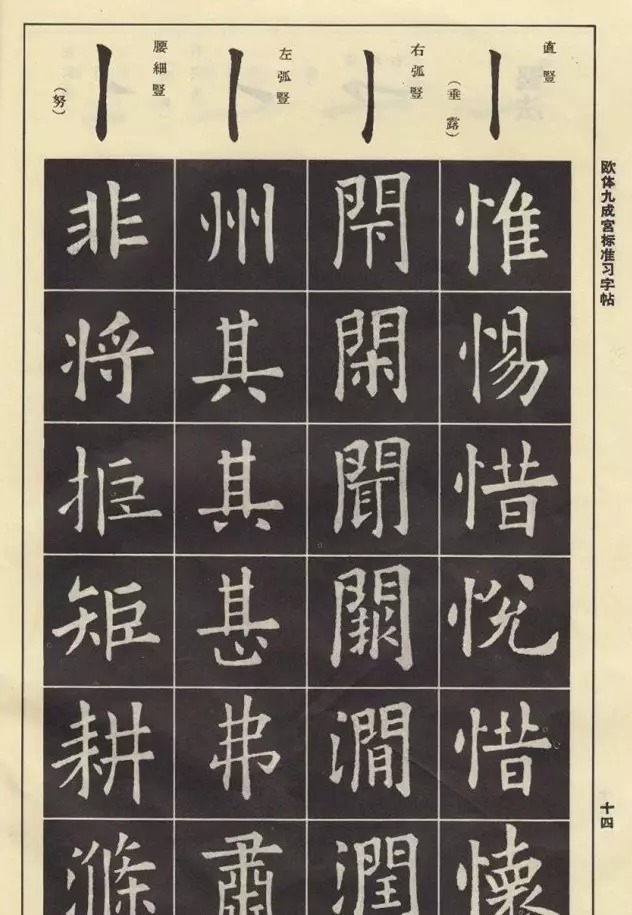 欧体九成宫标准习字帖
十四
直豎
（垂露）
惟惕惜悦惜懷
右弧豎
閇閑聞闕澗潤
左弧豎
州其其惎弗肅
腰細豎
（努）
非将拒矩耕滌